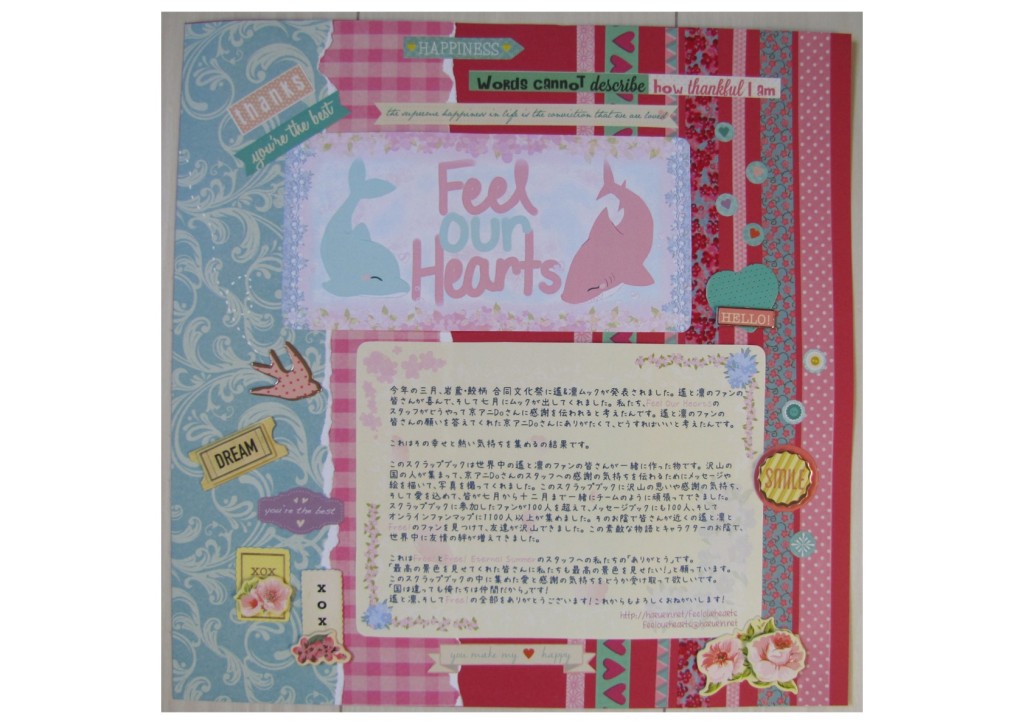 HAPPINESS
WORDS CANNOT describe how thankful I am
thanks
you're the best
the supreme happiness in life is the conviction that we are loved
Feel
our
Hearts
HELLO!
今年の三月、岩鳶・鮫柄 合同文化祭に遙&凛ムックが発表されました。遙と凛のファンの
皆さんが喜んで、そして七月にムックが出してくれました。私たち、Feel Our Heartsの
スタッフがどうやって京アニDoさんに感謝を伝われると考えたんです。遙と凛のファンの
皆さんの願いを答えてくれた京アニDoさんにありがたくて、どうすればいいと考えたんです。
これはその幸せと熱い気持ちを集めるの結果です。
このスクラップブックは世界中の遙と凛のファンの皆さんが一緒に作った物です。沢山の
国の人が集まって、京アニDoさんのスタッフへの感謝の気持ちを伝わるためにメッセージや
絵を描いて、写真を撮ってくれました。このスクラップブックに沢山の思いや感謝の気持ち、
そして愛を込めて、皆が七月から十二月まで一緒にチームのように頑張ってできました。
スクラップブックに参加したファンが100人を超えて、メッセージブックにも100人、そして
オンラインファンマップに1100人以上が集めました。そのお陰で皆さんが近くの遙と凛と
Free!のファンを見つけて、友達が沢山できました。この素敵な物語とキャラクターのお陰で、
世界中に友情の絆が増えてきました。
これはFree!とFree! Eternal Summerのスタッフへの私たちの「ありがとう」です。
「最高の景色を見せてくれた皆さんに私たちも最高の景色を見せたい!」と願っています。
このスクラップブックの中に集めた愛と感謝の気持ちをどうか受け取って欲しいです。
「国は違っても俺たちは仲間だから」です!
遙と凛、そしてFree!の全部をありがとうございます!これからもよろしくおねがいします!
http://harurin.net/feelourhearts
feelourhearts@harurin.net
DREAM
SMILE
you're the best
xox
X
O
X
you make my happy